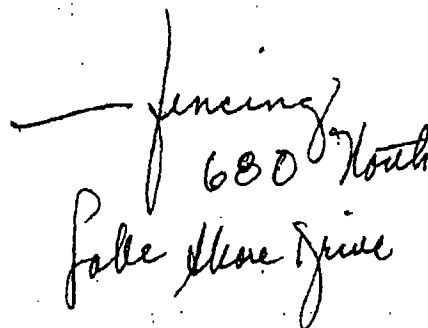 — fencing
680 North
Lake Shore Drive